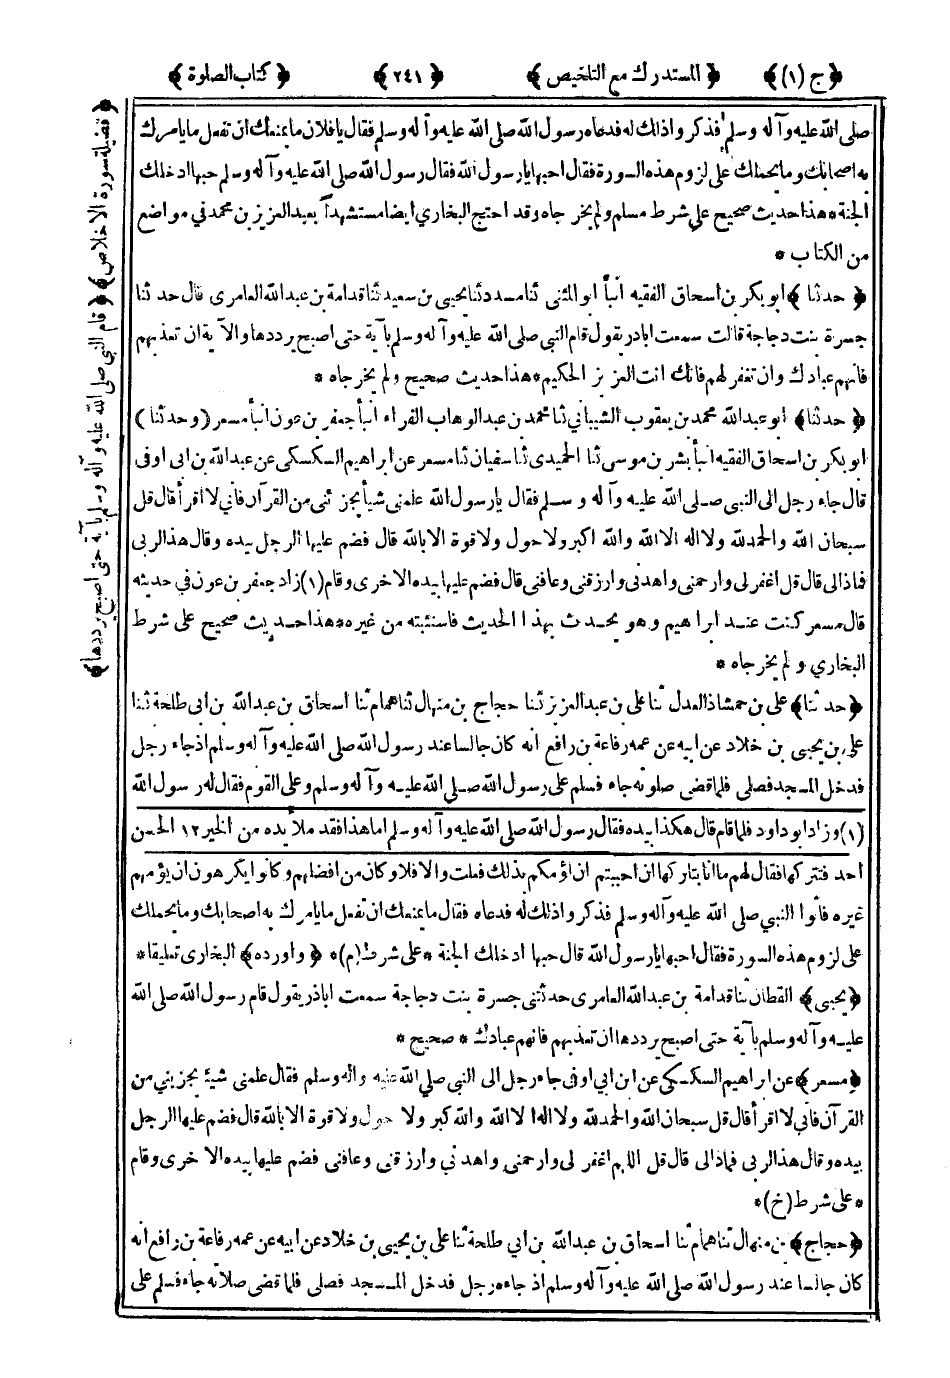 ﴿ ج (١) ﴾ ﴿ المستدرك مع التلخيص ﴾ ﴿ ٢٤١ ﴾ ﴿ كتاب الصلوة ﴾
صلى الله عليه وآله وسلم فذكروا ذلك له فدعاه رسول الله صلى الله عليه وآله وسلم فقال يا فلان ما يمنعك ان تفعل ما يامرك
به اصحابك وما يحملك على لزوم هذه السورة فقال احبها يا رسول الله فقال رسول الله صلى الله عليه وآله وسلم حبها ادخلك
الجنة * هذا حديث صحيح على شرط مسلم ولم يخرجاه وقد احتج البخاري ايضا مستشهداً بعبد العزيز بن محمد في مواضع
من الكتاب *
﴿ حدثنا ﴾ ابو بكر بن اسحاق الفقيه انبأ ابو المثنى ثنا مسدد ثنا يحيى بن سعيد ثنا قدامة بن عبد الله العامرى قال حدثنا
جسرة بنت دجاجة قالت سمعت اباذر يقول قام النبي صلى الله عليه وآله وسلم بآية حتى اصبح يرددها والآية ان تعذبهم
فانهم عبادك وان تغفر لهم فانك انت العزيز الحكيم * هذا حديث صحيح ولم يخرجاه *
﴿ حدثنا ﴾ ابو عبد الله محمد بن يعقوب الشيباني ثنا محمد بن عبد الوهاب الفراء انبأ جعفر بن عون انبأ مسعر (وحدثنا)
ابو بكر بن اسحاق الفقيه انبأ بشر بن موسى ثنا الحميدى ثنا سفيان ثنا مسعر عن ابراهيم السكسكى عن عبد الله بن ابى اوفى
قال جاء رجل الى النبى صلى الله عليه وآله وسلم فقال يا رسول الله علمنى شيأ يجزئنى من القرآن فاني لا اقرأ قال قل
سبحان الله والحمد لله ولا اله الا الله والله اكبر ولا حول ولا قوة الا بالله قال فضم عليها الرجل بيده وقال هذا لربى
فماذا لى قال قل اغفر لى وارحمنى واهدنى وارزقنى وعافنى قال فضم عليها بيده الاخرى وقام (١) زاد جعفر بن عون في حديثه
قال مسعر كنت عند ابراهيم وهو يحدث بهذا الحديث فاستثبته من غيره * هذا حديث صحيح على شرط
البخاري ولم يخرجاه *
﴿ حدثنا ﴾ على بن حمشاذ العدل ثنا على بن عبد العزيز ثنا حجاج بن منهال ثنا همام ثنا اسحاق بن عبد الله بن ابى طلحة ثنا
على بن يحيى بن خلاد عن ابيه عن عمه رفاعة بن رافع انه كان جالسا عند رسول الله صلى الله عليه وآله وسلم اذ جاء رجل
فدخل المسجد فصلى فلما قضى صلوته جاء فسلم على رسول الله صلى الله عليه وآله وسلم وعلى القوم فقال له رسول الله
(١) وزاد ابو داود فلما قام قال هكذا بيده فقال رسول الله صلى الله عليه وآله وسلم اما هذا فقد ملأ يده من الخير ١٢ الحسن
احد فتتركها فقال لهم ما انا بتاركها ان احببتم ان اؤمكم بذلك فعلت والا فلا وكان من افضلهم وكانوا يكرهون ان يؤمهم
غيره فأتوا النبي صلى الله عليه وآله وسلم فذكروا ذلك له فدعاه فقال ما يمنعك ان تفعل ما يامرك به اصحابك وما يحملك
على لزوم هذه السورة فقال احبها يا رسول الله قال حبها ادخلك الجنة * على شرط (م) * ﴿ واورده ﴾ البخارى تعليقا *
﴿ يحيى ﴾ القطان ثنا قدامة بن عبد الله العامرى حدثتنى جسرة بنت دجاجة سمعت اباذر يقول قام رسول الله صلى الله
عليه وآله وسلم بآية حتى اصبح يرددها ان تعذبهم فانهم عبادك * صحيح *
﴿ مسعر ﴾ عن ابراهيم السكسكى عن ابن ابي اوفى جاء رجل الى النبي صلى الله عليه وآله وسلم فقال علمنى شيئ يجزيني من
القرآن فاني لا اقرأ قال قل سبحان الله والحمد لله ولا اله الا الله والله اكبر ولا حول ولا قوة الا بالله قال فضم عليها الرجل
بيده وقال هذا لربى فماذا لى قال قل اللهم اغفر لى وارحمنى واهدني وارزقنى وعافنى فضم عليها بيده الاخرى وقام
* على شرط (خ) *
﴿ حجاج ﴾ بن منهال ثنا همام ثنا اسحاق بن عبد الله بن ابي طلحة ثنا على بن يحيى بن خلاد عن ابيه عن عمه رفاعة بن رافع انه
كان جالسا عند رسول الله صلى الله عليه وآله وسلم اذ جاءه رجل فدخل المسجد فصلى فلما قضى صلاته جاء فسلم على
﴿ فضيلة سورة الاخلاص ﴾ ﴿ قام النبي صلى الله عليه وآله وسلم بآية حتى اصبح يرددها ﴾